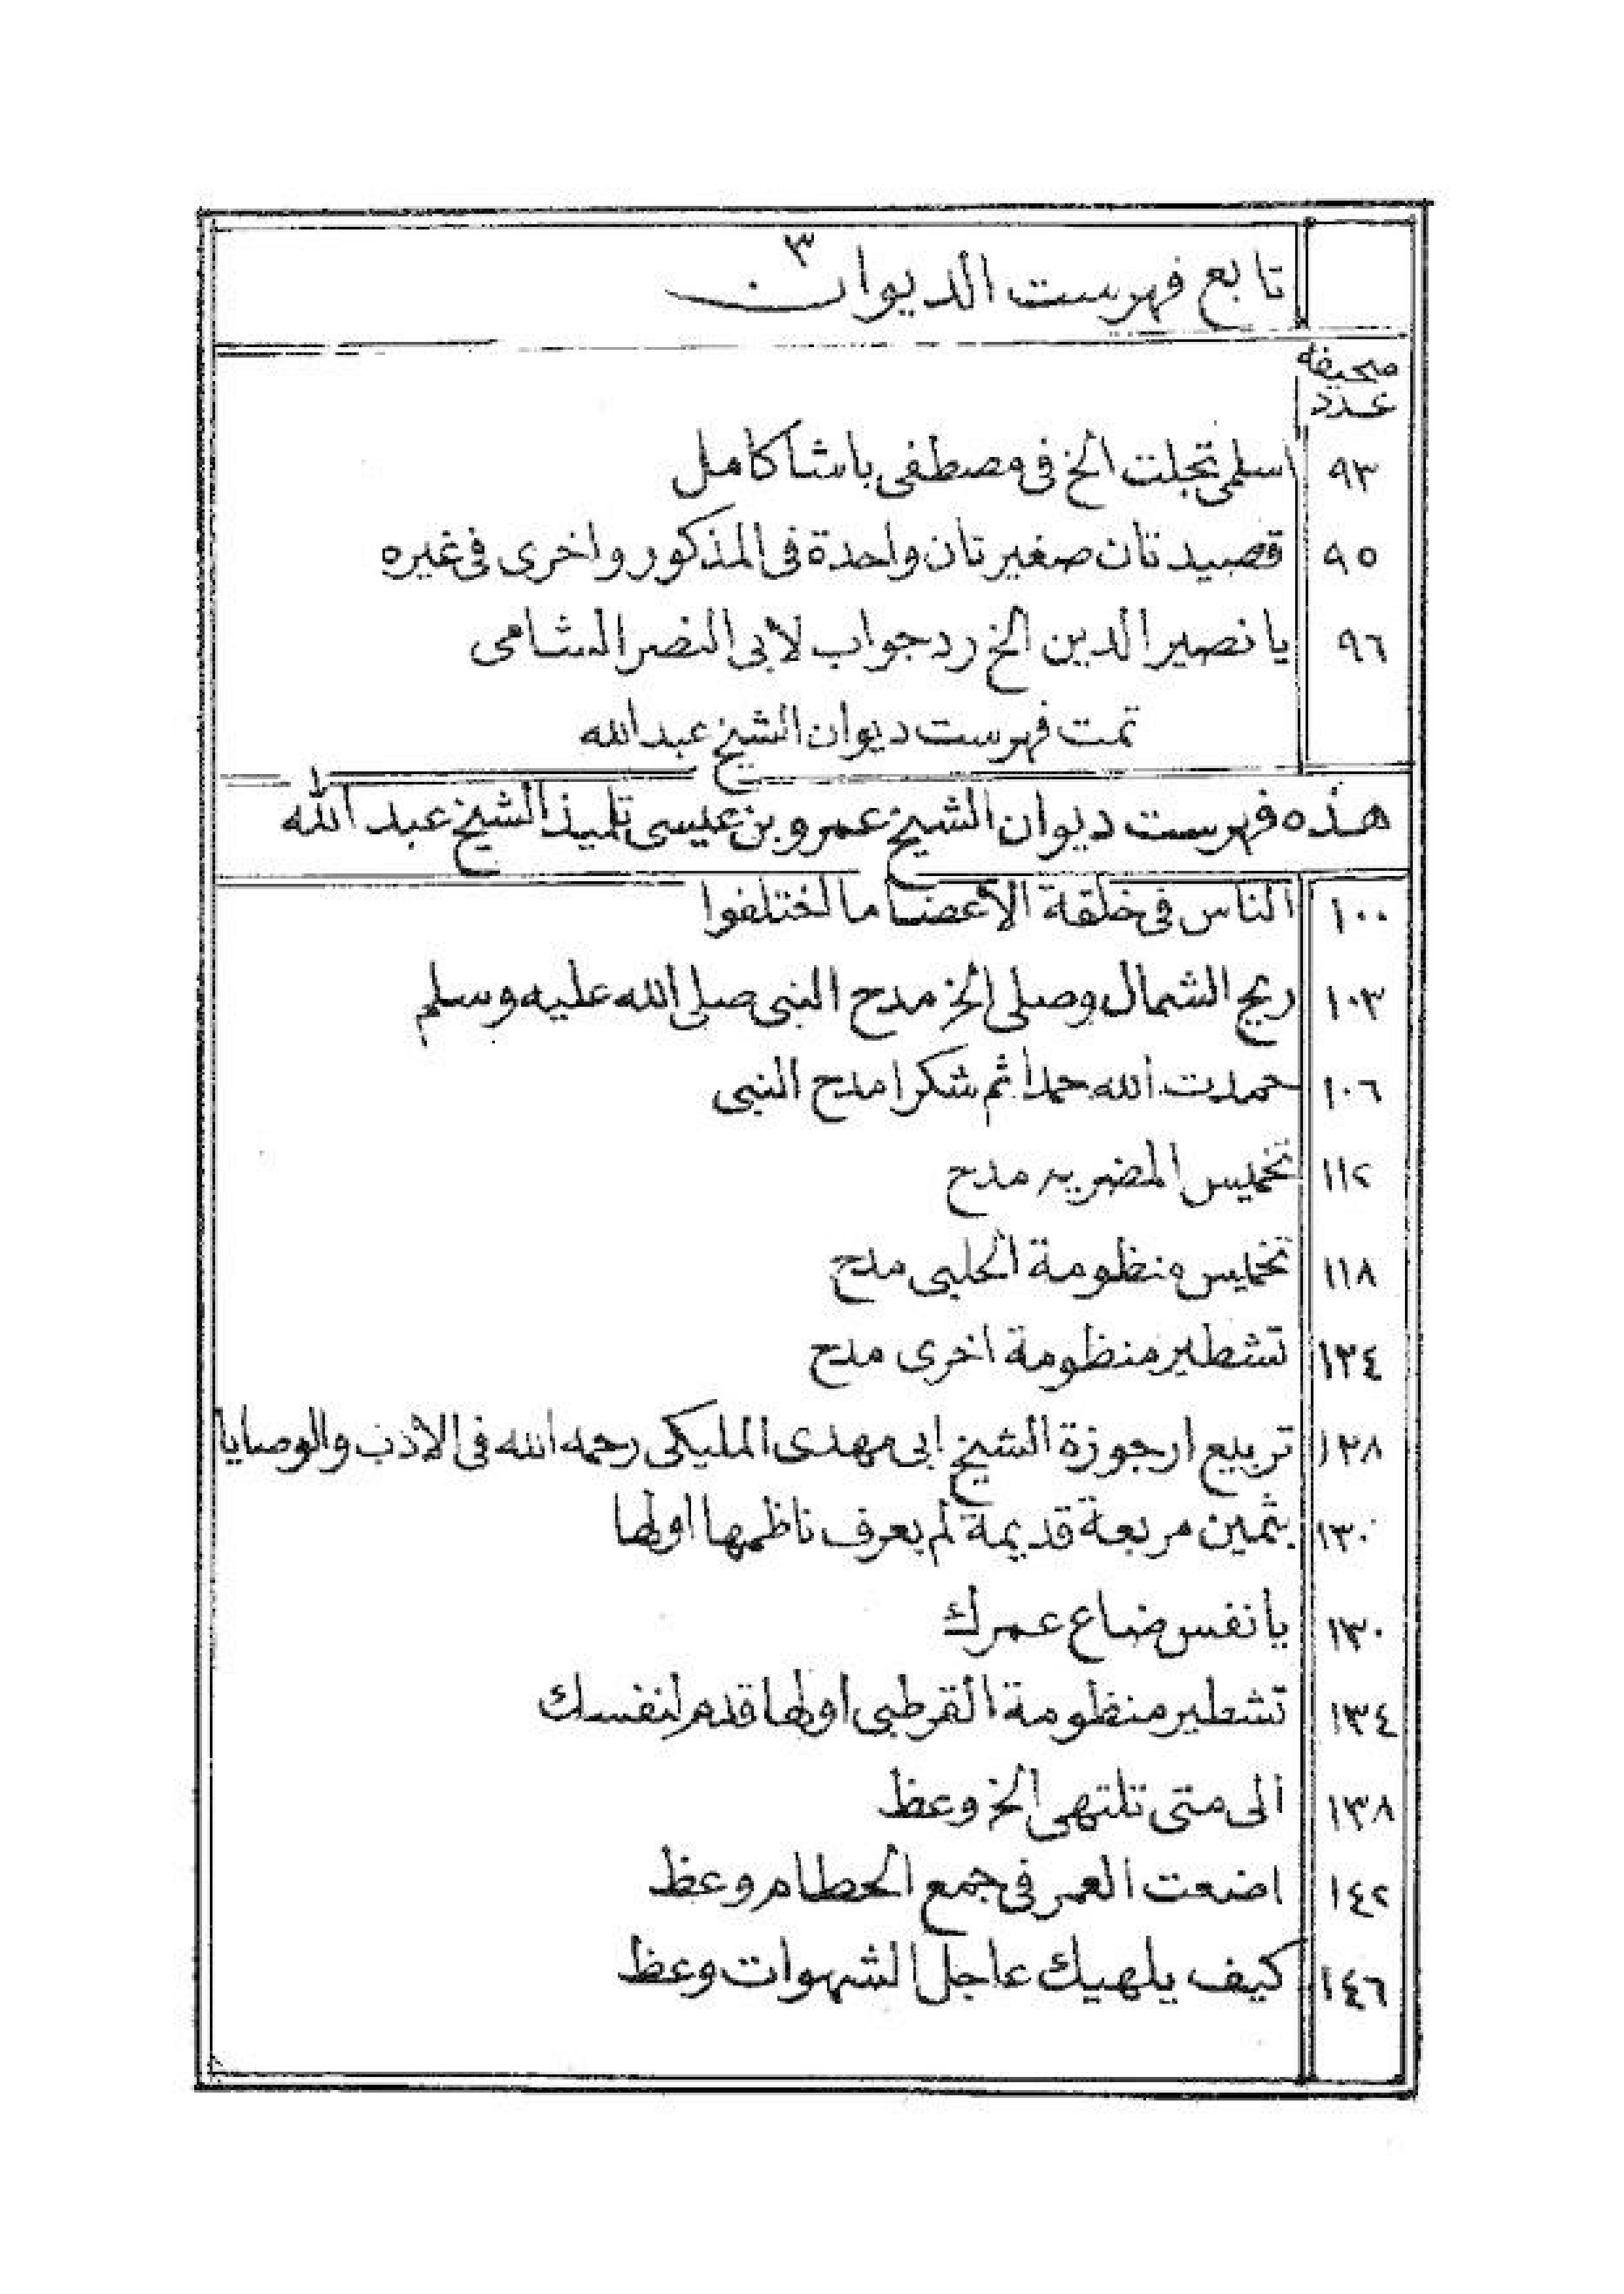 ٣
تابع فهرست الديوان
صحيفه
عدد
٩٣ اسلمى تجلت الخ فى مصطفى باشا كامل
٩٥ قصيدتان صغيرتان واحدة فى المذكور واخرى فى غيره
٩٦ يا نصير الدين الخ رد جواب لأبى النصر الشامى
تمت فهرست ديوان الشيخ عبد الله
هذه فهرست ديوان الشيخ عمرو بن عيسى تلميذ الشيخ عبد الله
١٠٠ الناس فى خلقة الأعضا ما اختلفوا
١٠٣ ريح الشمال وصلى الخ مدح النبى صلى الله عليه وسلم
١٠٦ حمدت الله حمدا ثم شكرا مدح النبى
١١٢ تخميس المضريه مدح
١١٨ تخميس منظومة الحلبى مدح
١٢٤ تشطير منظومة اخرى مدح
١٢٨ تربيع ارجوزة الشيخ ابى مهدى المليكى رحمه الله فى الأدب والوصايا
١٣٠ بثمين مربعة قديمة لم يعرف ناظمها اولها
١٣٠ يا نفس ضاع عمرك
١٣٤ تشطير منظومة القرطبى اولها قدم لنفسك
١٣٨ الى متى تلتهى الخ وعظ
١٤٢ اضعت العمر فى جمع الحطام وعظ
١٤٦ كيف يلهيك عاجل الشهوات وعظ